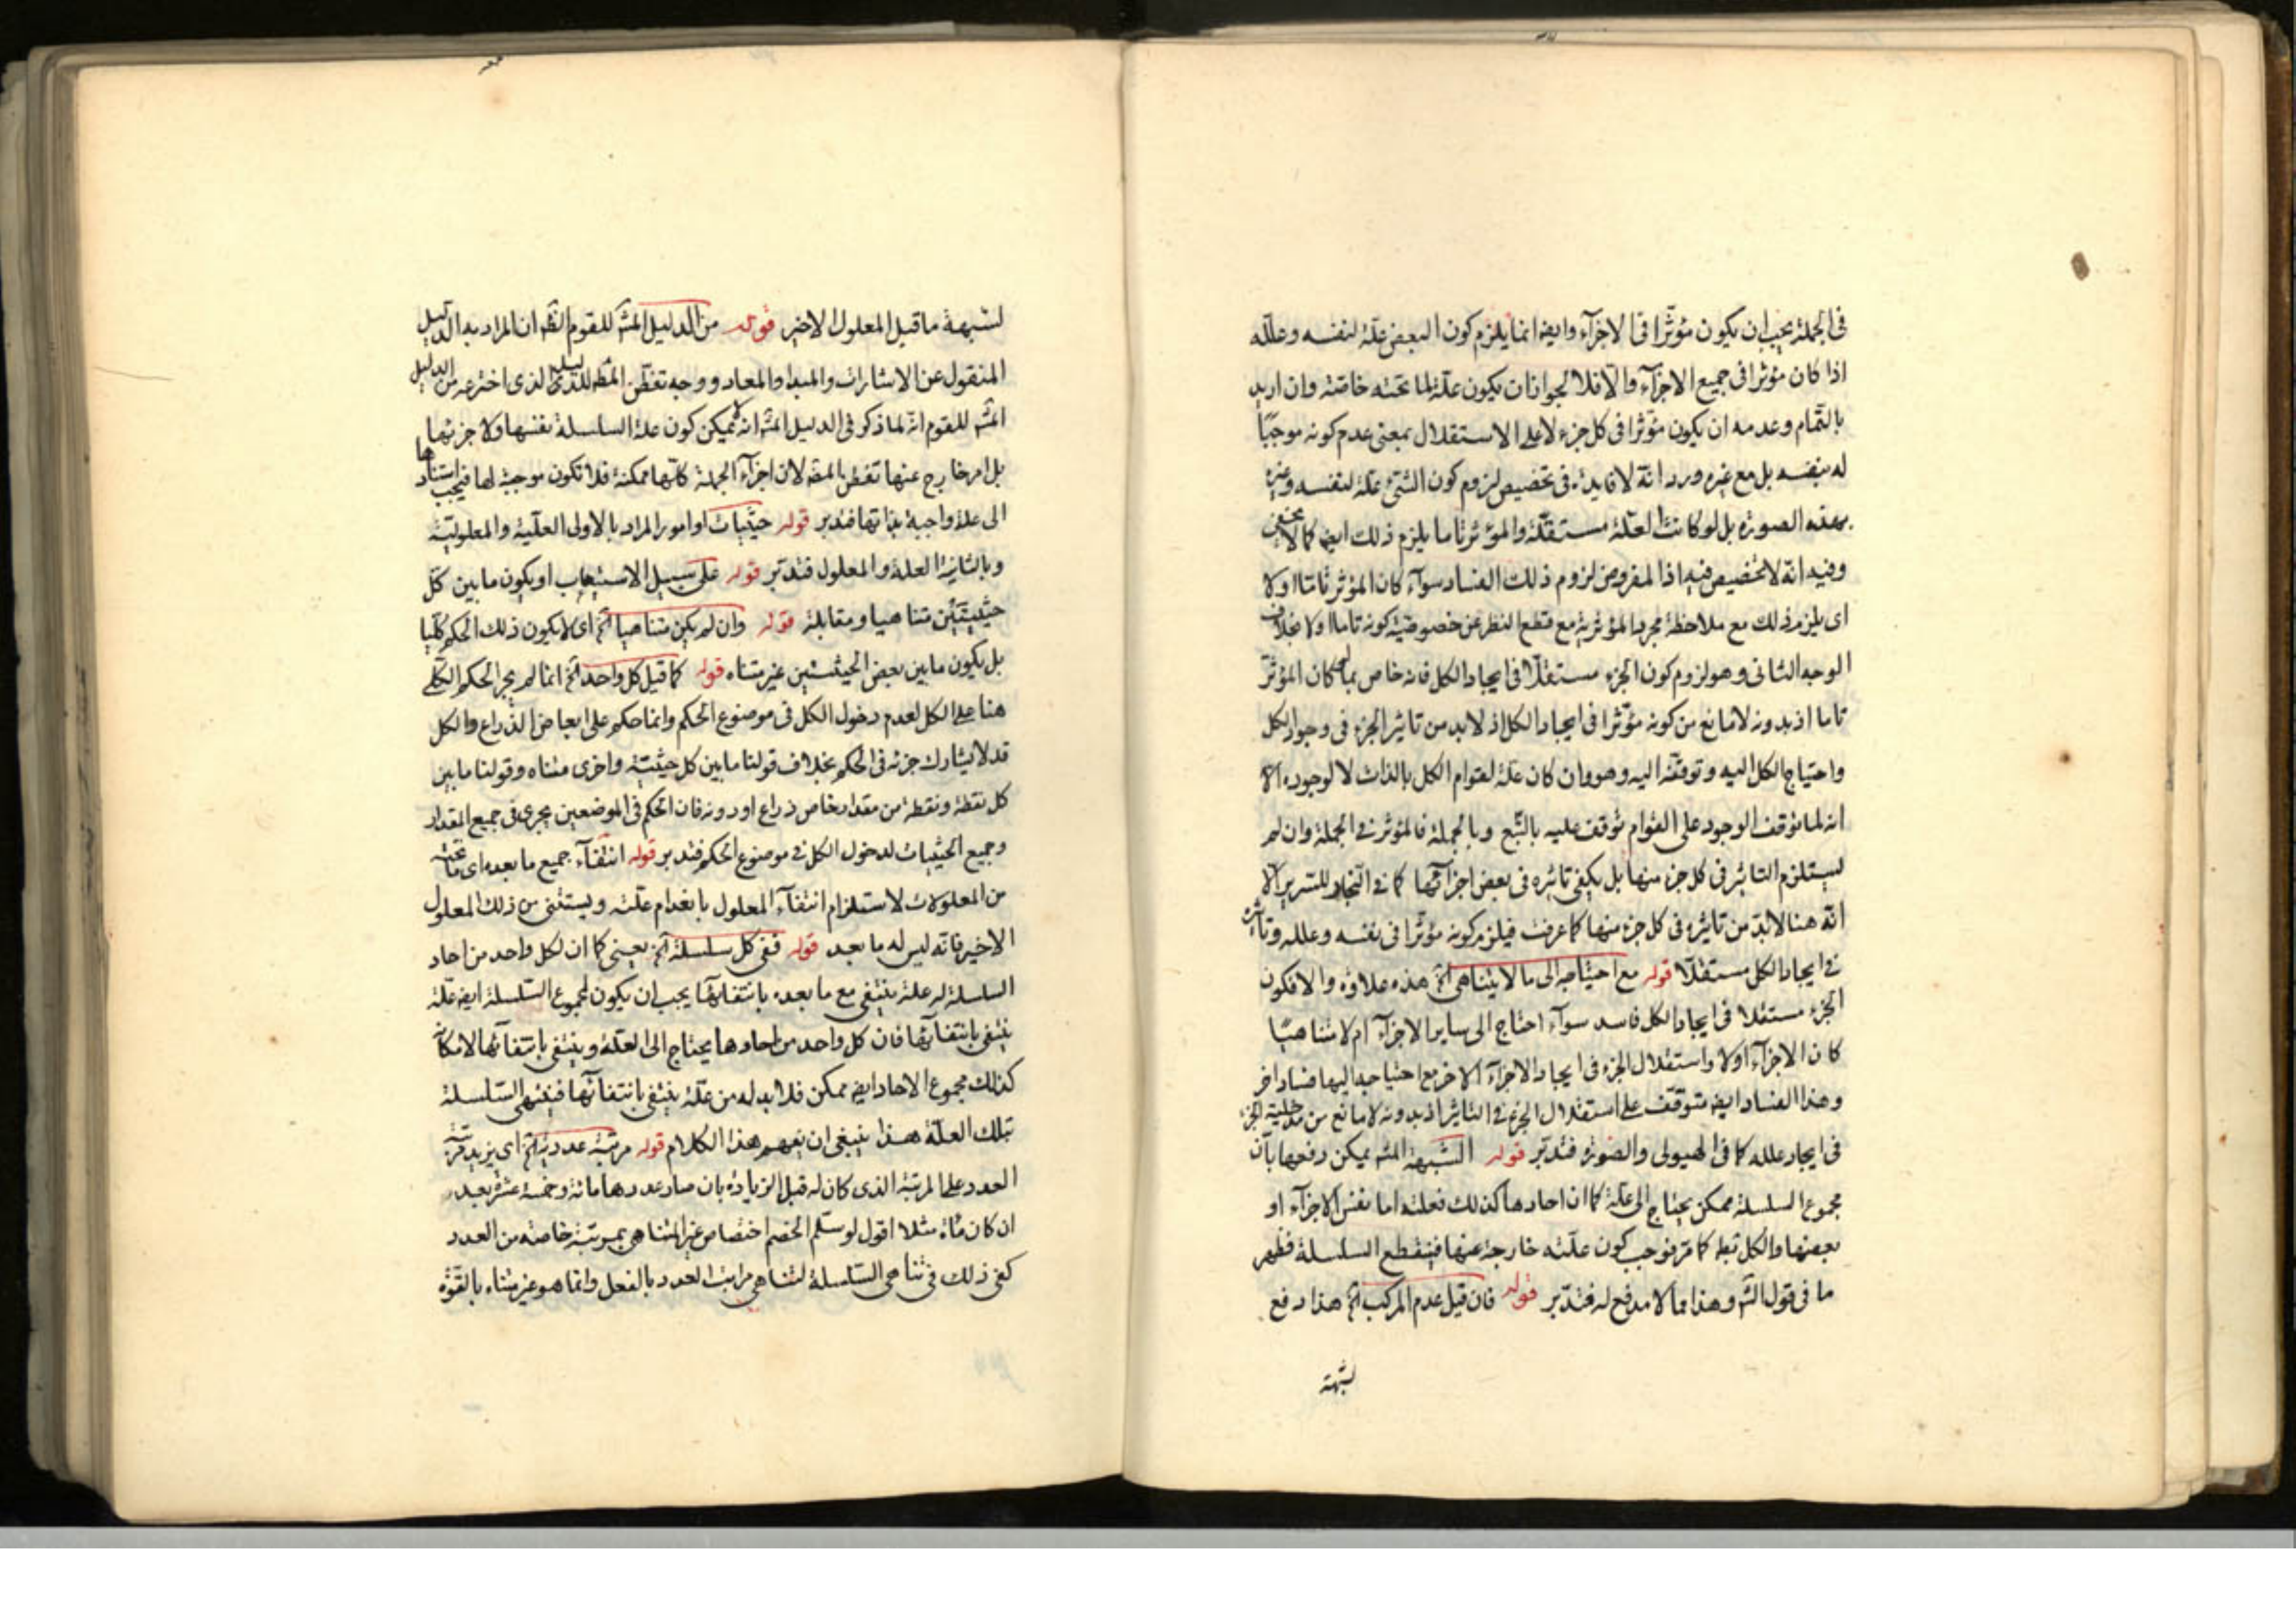 فى الجملة يجب ان يكون مؤثرا فى الاجزآء وايضا انما يلزم كون البعض علة لنفسه وعلله
اذا كان مؤثرا فى جميع الاجزآء والا فلا لجواز ان يكون علة لما تحته خاصة وان اريد
بالتمام وعدمه ان يكون مؤثرا فى كل جزء لا على الاستقلال بمعنى عدم كونه موجبا
له بنفسه بل مع غيره ورد انه لا فايدة فى تخصيص لزوم كون الشئ علة لنفسه وغيره
بهذه الصورة بل لو كانت العلة مستقلة والمؤثر تاما يلزم ذلك ايضا كما لا يخفى
وفيه انه لا تخصيص فيه اذا المفروض لزوم ذلك الفساد سوآء كان المؤثر تاما اولا
اى يلزم ذلك مع ملاحظة مجرد المؤثرية مع قطع النظر عن خصوصية كونه تاما اولا بخلاف
الوجه الثانى وهو لزوم كون الجزء مستقلا فى ايجاد الكل فانه خاص بما كان المؤثر
تاما اذ بدونه لا مانع من كونه مؤثرا فى ايجاد الكل اذ لا بد من تاثير الجزء فى وجود الكل
واحتياج الكل اليه وتوقفه اليه وهو وان كان علة لقوام الكل بالذات لا لوجوده الا
انه لما توقف الوجود على القوام توقف عليه بالتبع وبالجملة فالمؤثر فى الجملة وان لم
يستلزم التاثير فى كل جزء منها بل يكفى تاثيره فى بعض اجزآئها كما فى النجار للسرير الا
انه هنا لا بد من تاثيره فى كل جزء منها كما عرفت فيلزم كونه مؤثرا فى نفسه وعلله وتاثيره
فى ايجاد الكل مستقلا قوله مع احتياجه الى ما لا يتناهى الخ هذه علاوة والا فكون
الجزء مستقلا فى ايجاد الكل فاسد سوآء احتاج الى ساير الاجزآء ام لا متناهيا
كان الاجزآء اولا واستقلال الجزء فى ايجاد الاجزآء الاخر مع احتياجه اليها فساد اخر
وهذا الفساد ايضا متوقف على استقلال الجزء فى التاثير اذ بدونه لا مانع من مدخلية الجزء
فى ايجاد علله كما فى الهيولى والصورة فتدبر قوله الشبهة المشه يمكن دفعها بان
مجموع السلسلة ممكن يحتاج الى علة كما ان احادها كذلك فعلته اما نفس الاجزآء او
بعضها والكل بط كما مر فوجب كون علته خارجة عنها فينقطع السلسلة فظهر
ما فى قول الش وهذا مما لا مدفع له فتدبر قوله فان قيل عدم المركب الخ هذا دفع
لشبهة
لشبهة ما قبل المعلول الاخير قوله من الدليل المشه للقوم الظ ان المراد به الدليل
المنقول عن الاشارات والمبدا والمعاد ووجه تفطن المص للدليل الذى اخترعه من الدليل
المشه للقوم انه لما ذكر فى الدليل المشه انه لم يمكن كون علة السلسلة نفسها ولا جزئها
بل امر خارج عنها تفطن المص لان اجزآء الجملة كلها ممكنة فلا تكون موجبة لها فيجب استنادها
الى علة واجبة بذاتها فتدبر قوله حيثيات او امور المراد بالاولى العلية والمعلولية
وبالثانية العلة والمعلول فتدبر قوله على سبيل الاستيعاب اويكون ما بين كل
حيثيتين متناهيا ومقابله قوله وان لم يكن متناهيا الخ اى لا يكون ذلك الحكم كليا
بل يكون ما بين بعض الحيثيتين غير متناه قوله كما قيل كل واحد الخ انما لم يجر الحكم الكلى
هنا على الكل لعدم دخول الكل فى موضوع الحكم وانما حكم على ابعاض الذراع والكل
قد لا يشارك جزئه فى الحكم بخلاف قولنا ما بين كل حيثية واخرى متناه وقولنا ما بين
كل نقطة ونقطة من مقدار خاص ذراع او دونه فان الحكم فى الموضعين يجرى فى جميع المقدار
وجميع الحيثيات لدخول الكل فى موضوع الحكم فتدبر قوله انتفآء جميع ما بعده اى ما تحته
من المعلولات لاستلزام انتفآء المعلول بانعدام علته ويستثنى من ذلك المعلول
الاخير فانه ليس له ما بعد قوله ففى كل سلسلة الخ يعنى كما ان لكل واحد من احاد
السلسلة له علة ينتفى مع ما بعده بانتفائها يجب ان يكون لمجموع السلسلة ايضا علة
ينتفى بانتفآئها فان كل واحد من احادها يحتاج الى العلة وينتفى بانتفآئها لامكانه
كذلك مجموع الاحاد ايضا ممكن فلا بد له من علة ينتفى بانتفآئها فينتهى السلسلة
بتلك العلة هذا ينبغى ان يفهم هذا الكلام قوله مرتبة عددية الخ اى يزيد مرتبة
العدد على المرتبة الذى كان له قبل الزيادة بان صار عددها مائة وخمسة عشرة بعد
ان كان مأة مثلا اقول لو سلم الخصم اختصاص غير المتناهى بمرتبة خاصة من العدد
كفى ذلك فى تناهى السلسلة لتناهى مراتب العدد بالفعل وانما هو غير متناه بالقوة